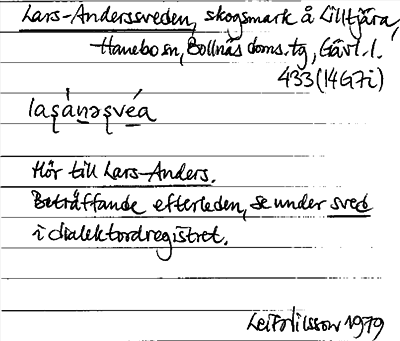 Lars-Anderssveden, skogsmark å Lilltjära,
Hanebo sn, Bollnäs doms. tg, Gävl. l.
433 (14G7i)
laşánəşvéa
Hör till Lars-Anders.
Beträffande efterleden, se under sved
i dialektordregistret.
Leif Nilsson 1979